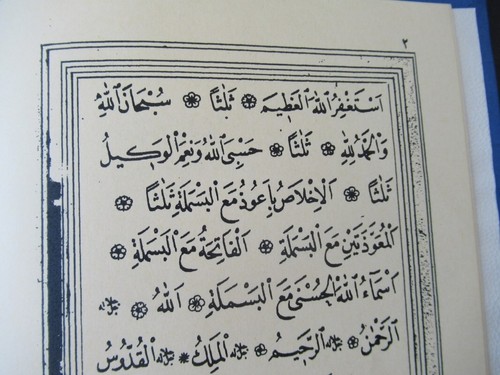 ٢
اَسْتَغْفِرُ اللّٰهَ الْعَظِيمَ ۞ ثَلٰثًا ۞ سُبْحَانَ اللّٰهِ
وَالْحَمْدُ لِلّٰهِ ۞ ثَلٰثًا ۞ حَسْبِىَ اللّٰهُ وَنِعْمَ الْوَكِيلُ
ثَلٰثًا ۞ اَلْاِخْلَاصُ بِاَعُوذُ مَعَ الْبَسْمَلَةِ ثَلٰثًا ۞
اَلْمُعَوَّذَتَيْنِ مَعَ الْبَسْمَلَةِ ۞ اَلْفَاتِحَةُ مَعَ الْبَسْمَلَةِ ۞
اَسْمَاءُ اللّٰهِ الْحُسْنٰى مَعَ الْبَسْمَلَةِ ۞ اَللّٰهُ ۞
اَلرَّحْمٰنُ ۞ اَلرَّحِيمُ ۞ اَلْمَلِكُ ۞ اَلْقُدُّوسُ